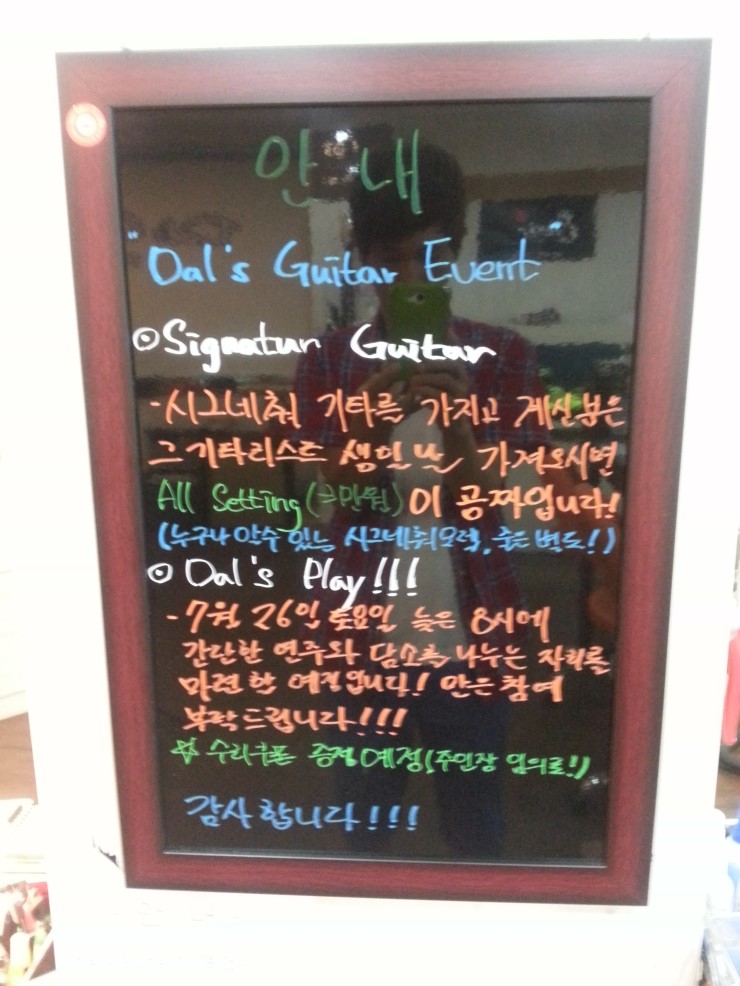 안 내
"Dal's Guitar Event
⊙ Signatur Guitar
-시그네춰 기타를 가지고 계신분은
그 기타리스트 생일날 가져오시면
All Setting (3만원) 이 공짜입니다!
(누구나 알수 있는 시그네춰모델, 죽은 벅도!)
⊙ Dal's Play!!!
-7월 26일 토요일 늦은 8시에
간단한 연주와 담소를 나누는 자리를
마련 한 예정입니다! 많은 참여
부탁드립니다!!!
☆ 수리쿠폰 증정예정(주인장 임의로!)
감사합니다!!!